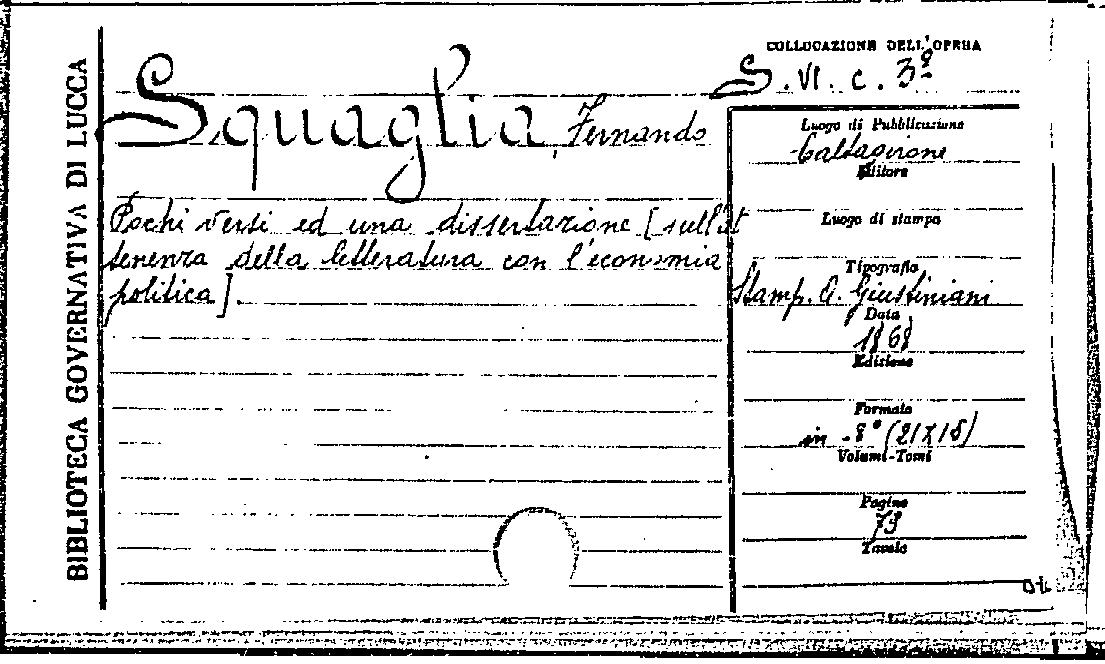 BIBLIOTECA GOVERNATIVA DI LUCCA
COLLOCAZIONE DELL'OPERA
S. VI. c. 3º
Squaglia, Fernando
Pochi versi ed una dissertazione [sull'at
tenenza della letteratura con l'economia
politica].
Luogo di Pubblicazione
Caltagirone
Editore
Luogo di stampa
Tipografia
Stamp. A. Giustiniani
Data
1868
Edizione
Formato
in-8º (21X15)
Volumi-Tomi
Pagine
79
Tavole